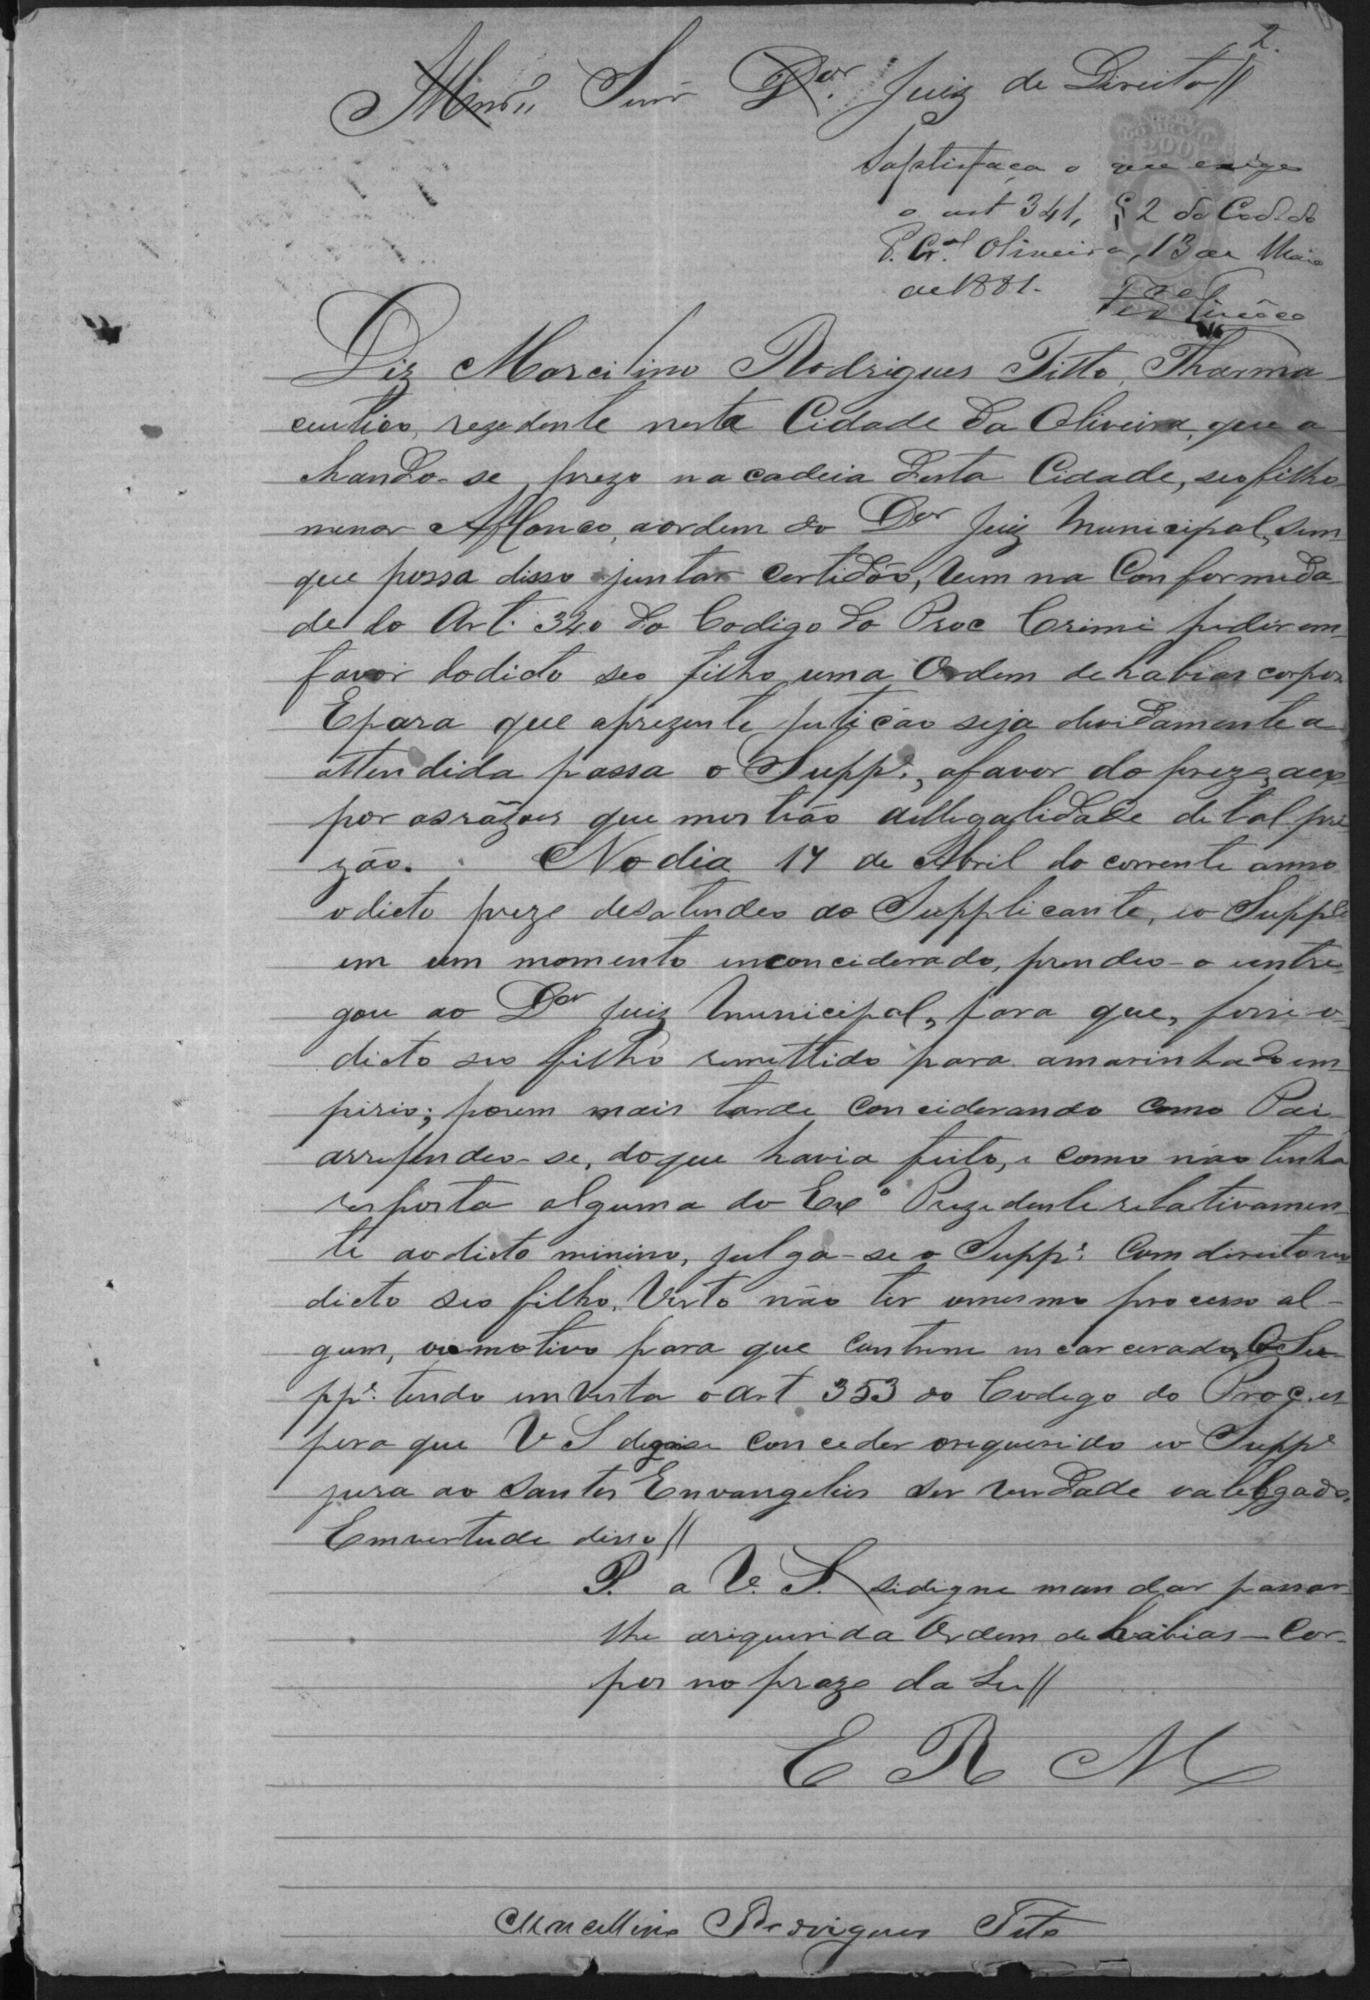 2.
Illmo. Senr. Dor. Juiz de Direito//
IMPERIO DO BRAZIL 200
Saptisfaça o que exige
o art 341, § 2 do Cod. do
P. Cral. Oliveira, 13 de Maio
de 1881.
Diz Marcilino Rodrigues Titto, Pharma
ceutico, rezedente nesta Cidade da Oliveira, que a
chando-se prezo na cadeia desta Cidade, seo filho
menor Affonco, a ordem do Dor Juiz Municipal, sem
que possa disso juntar certidão, vem na Conformida
de do Art. 340 do Codigo do Proc Crimi pedir em
favor do dicto seo filho uma Ordem de habias corpos
E para que a prezente petição seja divdamente a
ttendida passa o Suppe., a favor do prezo, a ex
por as rãzoes que mostrão a illegalidade de tal pri
zão. No dia 17 de Abril do corrente anno
o dicto prezo desatendeo ao Supplicante, e o Suppe
em um momento inconciderado, prendeo-o e entre
gou ao Dor Juiz Municipal, para que, fosse o
dicto seo filho remettido para a marinha do im
pirio; porem mais tarde conciderando como Pai
arrependeo-se, do que havia feito, e como não tenha
resposta alguma do Exo. Prezedente relativamen
te ao dicto minino, julga-se o Suppe. Com direito no
dicto seo filho. Visto não ter o mesmo processo al-
gum, ou motivo para que continue incarcerado, O Su-
ppe. tendo em vista o Art 353 do Codigo do Proç. es
pera que V S digne se conceder o requerido e o Suppe
jura ao Santos Envangelios ser verdade o allegado.
Em vertude disso//
P. a V. S. se digne mandar passar
lhe a riquerida Ordem de habias-Cor-
pos no prazo da Lei//
E R M
Marcellino Rodrigues Tito